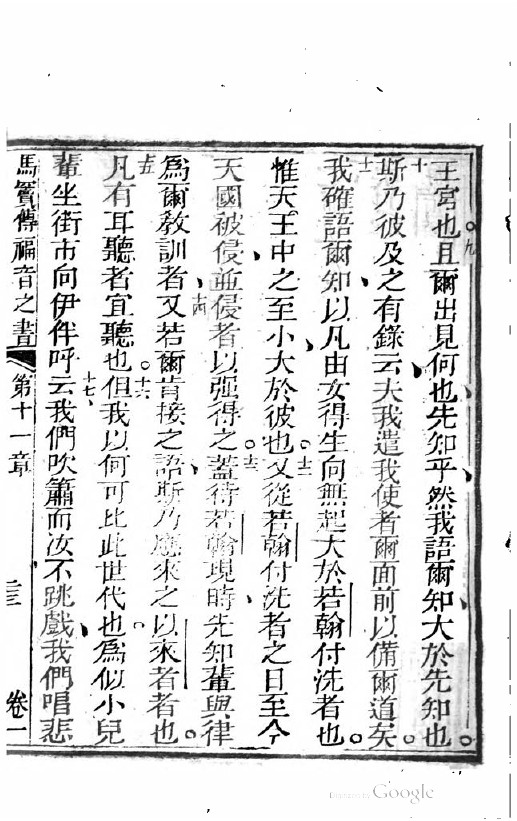 王宮也且爾出見何也先知乎然我語爾知大於先知也。
十斯乃彼及之有錄云夫我遣我使者爾面前以備爾道矣。
十一我確語爾知以凡由女得生向無起大於若翰付洗者也。
惟天王中之至小大於彼也。十二又從若翰付洗者之日至今
天國被侵並侵者以强得之。十三蓋待若翰現時先知輩與律
為爾教訓者十四又若爾肯接之語斯乃應來之以來者者也。
十五凡有耳聽者宜聽也。十六但我以何可比此世代也為似小兒
輩坐街市向伊伴呼云十七我們吹簫而汝不跳戲我們唱悲
馬竇傳福音之書 第十一章 二三 卷一
九
Digitized by Google